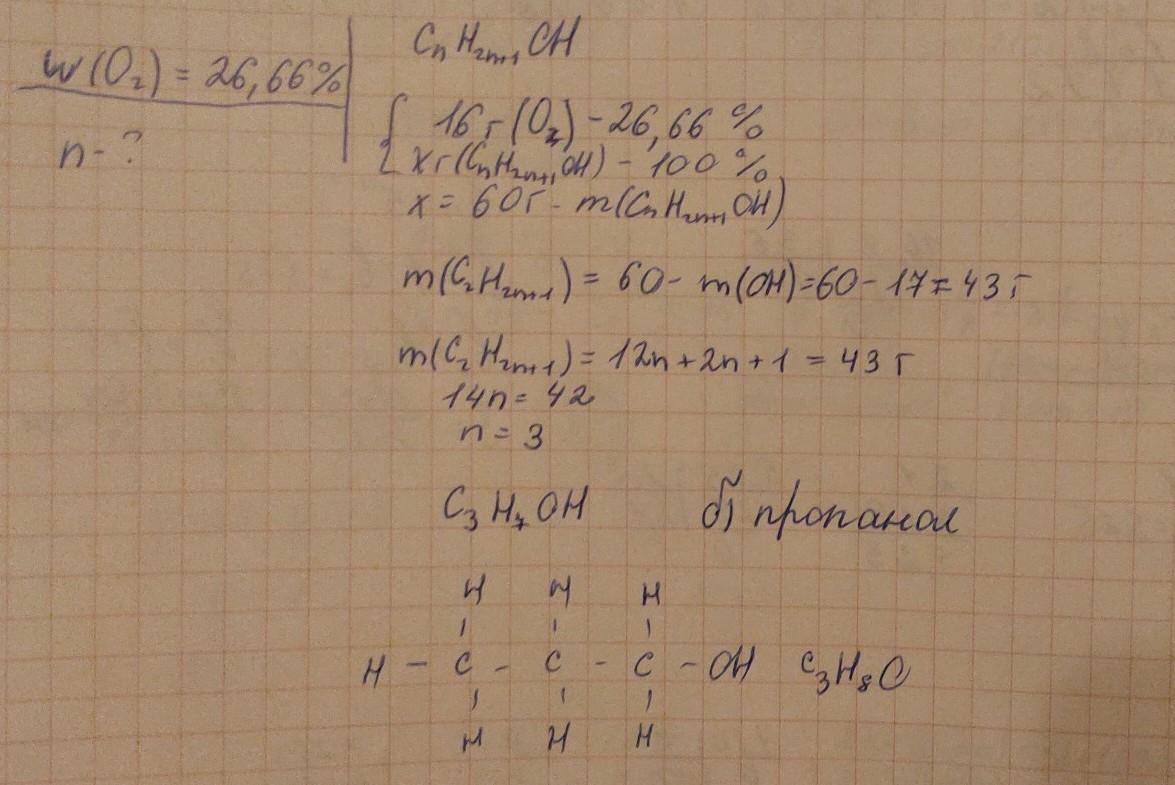 W(O₂) = 26,66%
n - ?
CₙH₂ₙ₊₁OH
16 г (O₂) - 26,66 %
x г (CₙH₂ₙ₊₁OH) - 100 %
x = 60 г - m(CₙH₂ₙ₊₁OH)
m(CₙH₂ₙ₊₁) = 60 - m(OH) = 60 - 17 = 43 г
m(CₙH₂ₙ₊₁) = 12n + 2n + 1 = 43 г
14n = 42
n = 3
C₃H₇OH б) пропанол
H H H
H - C - C - C - OH C₃H₈O
H H H